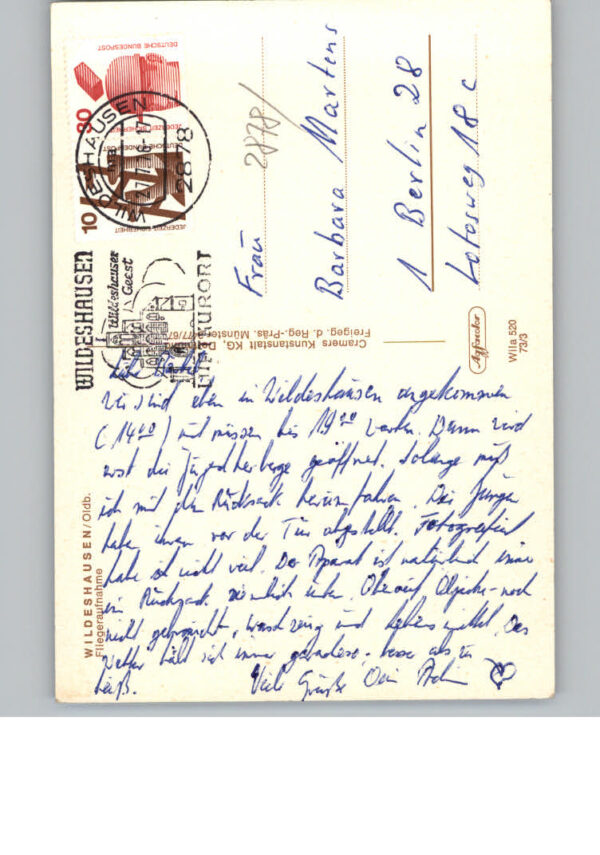 DEUTSCHE BUNDESPOST
80
JEDERZEIT SICHERHEIT
DEUTSCHE BUNDESPOST
10
JEDERZEIT SICHERHEIT
WILDESHAUSEN
2878
WILDESHAUSEN
Wildeshauser
Geest
LUFTKURORT
2878/
Frau
Barbara Martens
1 Berlin 28
Lotosweg 18 c
Cramers Kunstanstalt KG,
Freigeg. d. Reg.-Präs. Münster
Agfacolor
Wila 520
73/3
WILDESHAUSEN/Oldb.
Fliegeraufnahme
Liebe
Wir sind eben in Wildeshausen angekommen
(14⁰⁰) und müssen bis 19⁰⁰ warten. Dann wird
erst die Jugendherberge geöffnet. Solange muß
ich mit dem Rucksack herumfahren. Der Jürgen
habe ihn vor der Tür abgestellt. Fotografiert
habe ich nicht viel. Der Apparat ist natürlich immer
im Rucksack ziemlich unten. Obenauf Objektive - noch
nicht gebraucht, Waschzeug und Lebensmittel. Das
Wetter hält sich immer geradeso, besser als zu
heiß. Viele Grüße Dein Achim